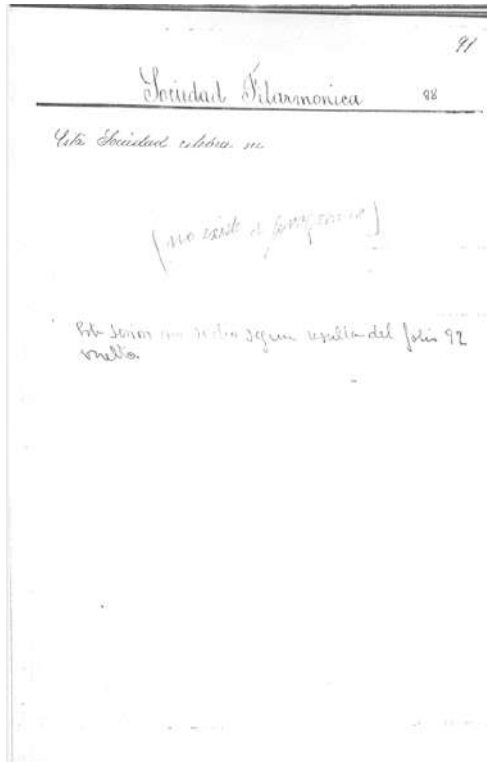 91
Sociedad Filarmonica 88
Esta Sociedad celebra su
(no existe el programa)
Esta sesion segun resulta del folio 92
vuelto.